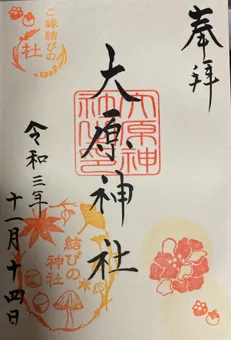 奉拝
大原神社
令和三年
十一月十四日
ご縁結びの
社
結びの
神社